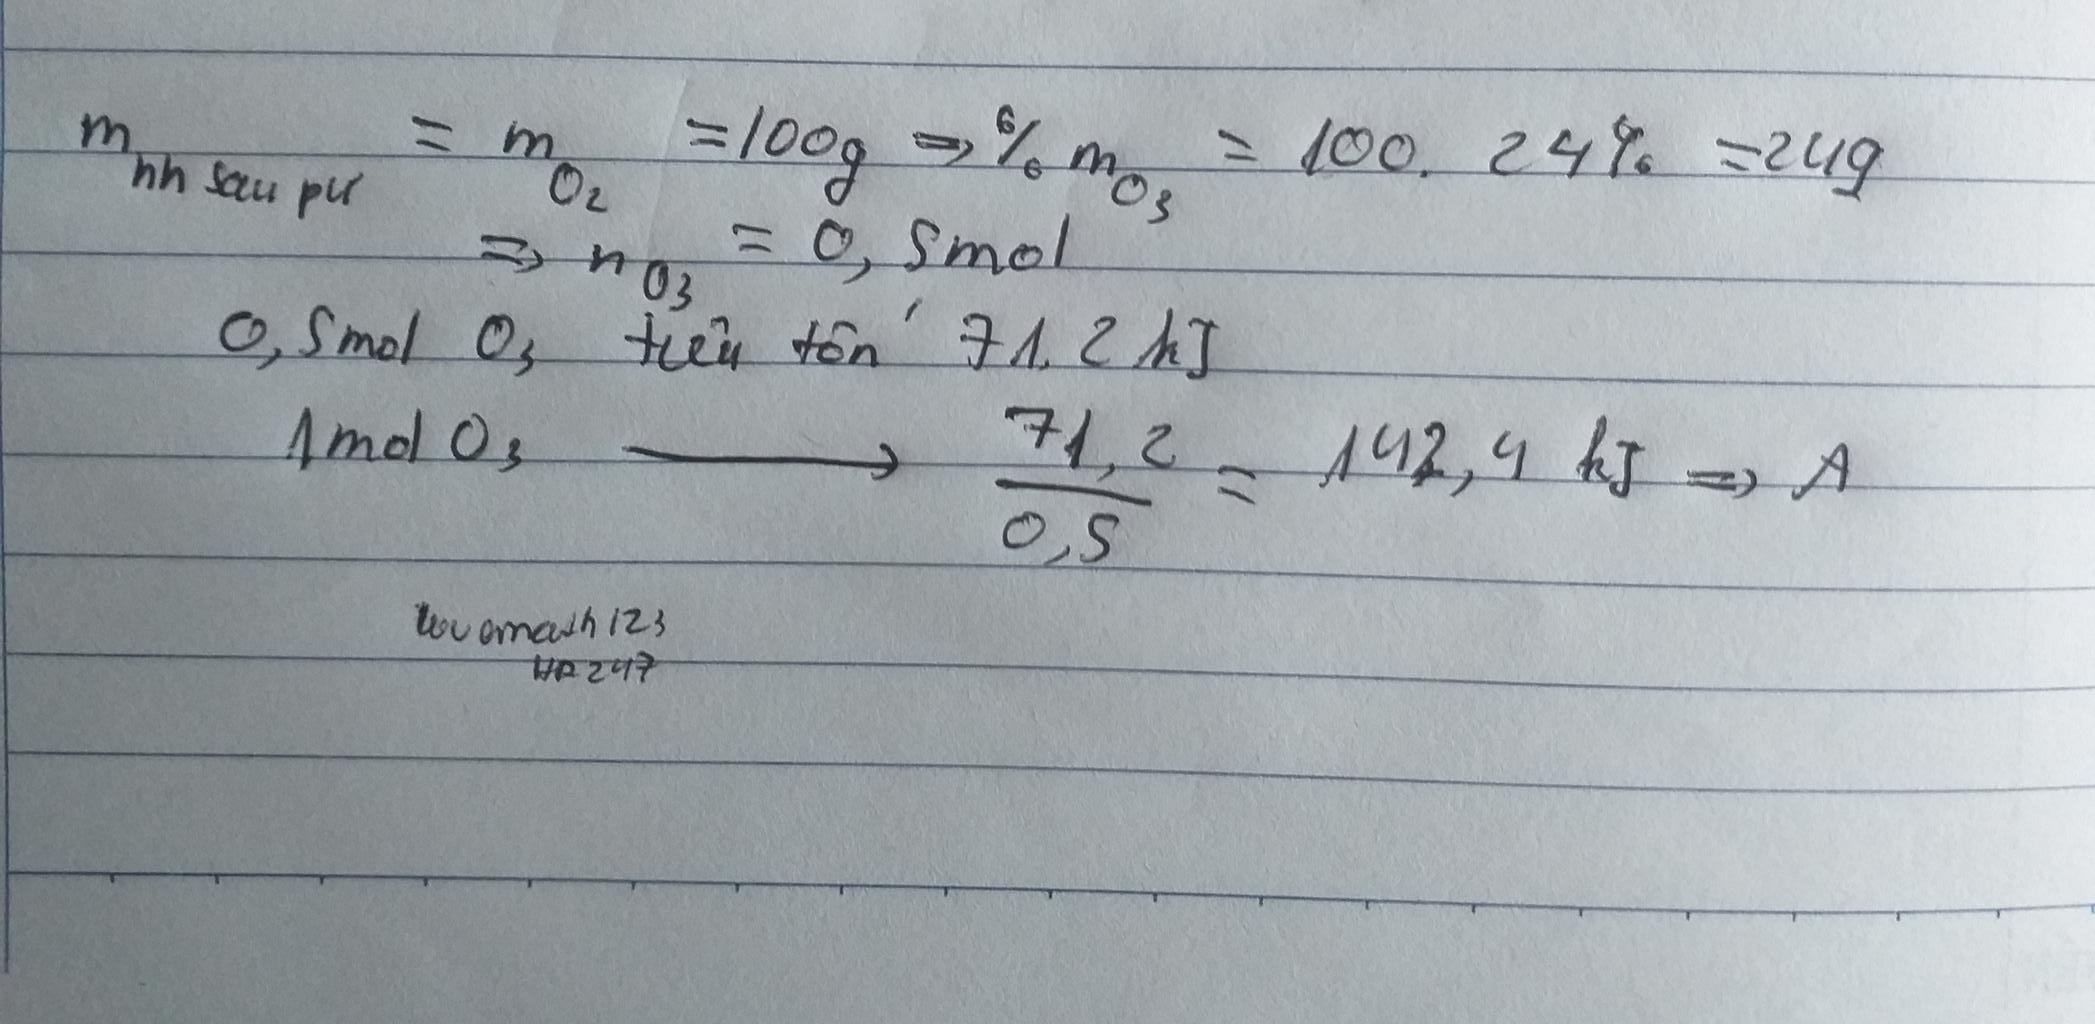 m hh sau pư = m O2 = 100g => % m O3 = 100. 24% = 24g
=> n O3 = 0,5mol
0,5mol O3 tiêu tốn 71,2 kJ
1mol O3 → 71,2 / 0,5 = 142,4 kJ => A
247